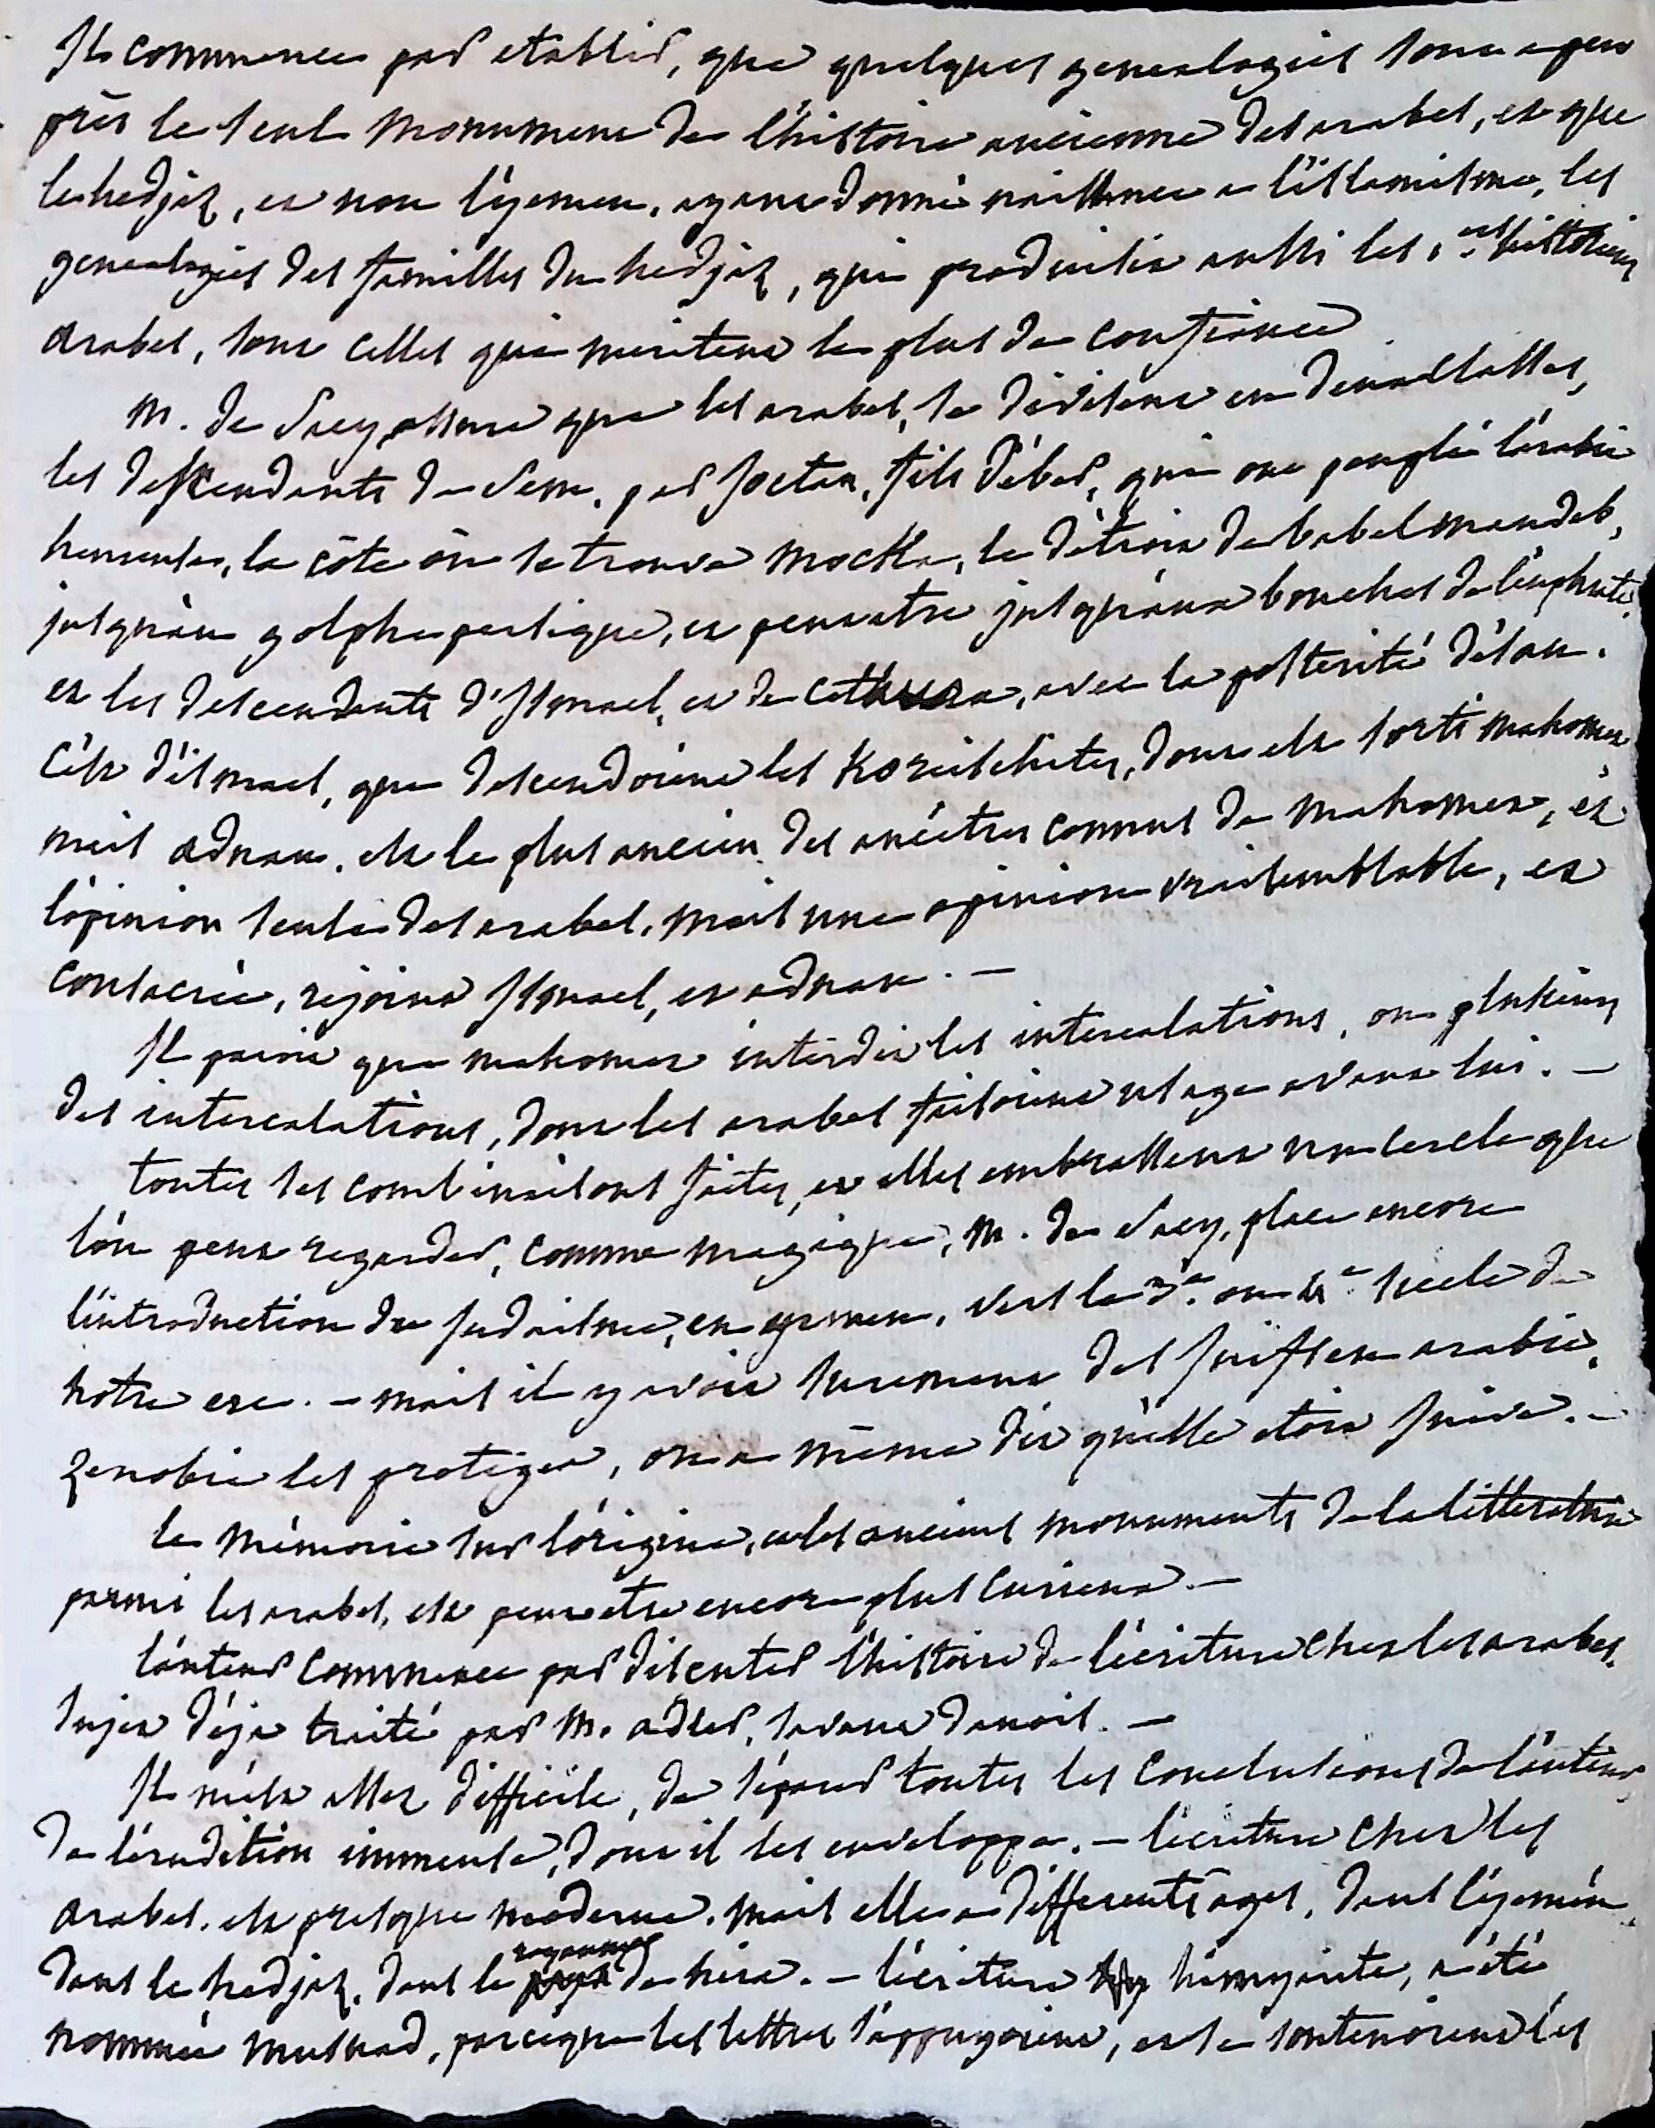 Il commence par etablir, que quelques genealogies sont a peu
près le seul monument de l'histoire ancienne des arabes, et que
le hedjaz, et non l'yemen, ayant donné naissance a l'islamisme, les
genealogies des familles du hedjaz, qui produisit aussi les 1.ers historiens
arabes, sont celles qui meritent le plus de confiance
M. de Sacy, assure que les arabes, se divisent en deux classes,
les descendants de Sem, par Joctan, fils d'éber, qui ont peuplé l'arabie
heureuse, la côte où se trouve Mocka, le détroit de babelmandeb,
jusqu'au golphe persique, et peut etre jusqu'aux bouches de l'euphrate,
et les descendants d'Ismael, et de Cethura, avec la posterité d'ésau.
C'est d'ismael, que descendoient les Koreischites, dont est sorti mahomet,
mais adnan, est le plus ancien des ancêtres connus de Mahomet, et
l'opinion seule des arabes, mais une opinion vraisemblable, et
consacrée, rejoint Ismael, et adnan. —
Il paroit que mahomet interdit les intercalations, ou plusieurs
des intercalations, dont les arabes faisoient usage avant lui. —
toutes ses combinaisons faites, et elles embrassent un cercle que
l'on peut regarder, comme magique, M. de Sacy, place encore
l'introduction du Judaisme, en yemen, vers le 3.e ou 4.e siecle de
notre ere. — mais il y avoit surement des Juifs en arabie,
Zenobie les protegea, on a même dit qu'elle etoit Juive. —
le mémoire sur l'origine, et les anciens monuments de la litterature
parmi les arabes, est peut etre encore plus curieux. —
l'auteur commence par discuter l'histoire de l'écriture chez les arabes,
sujet déja traité par M. adler, savant danois. —
Il m'est assez difficile, de séparer toutes les conclusions de l'auteur,
de l'érudition immense, dont il les enveloppe. — l'écriture chez les
arabes, est presque moderne, mais elle a differents ages, dans l'yemen,
dans le hedjaz, dans le royaume de hira. — l'écriture himyarite, a été
nommée musnad, parceque les lettres s'appuyoient, et se soutenoient les